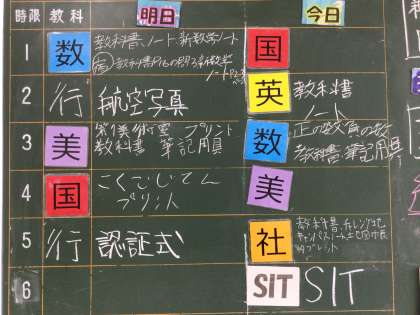 時限 教科 明日 今日
1 数 教科書、ノート、新数学ノート 国
教科書P16の問3
ノート
2 行 航空写真 英 教科書
ノート
3 美 美術室 プリント 数 正の数負の数
教科書 筆記用具 教科書・筆記用具
4 国 こくごじてん 美
プリント
5 行 認証式 社 教科書、チャレンジ
キャンパスノート、地図帳
タブレット
6 SIT SIT